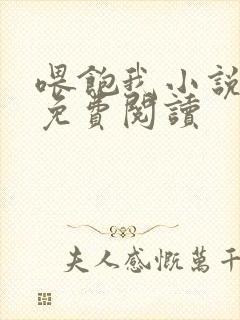 喂飽我小說
免費閱讀
夫人感慨萬千